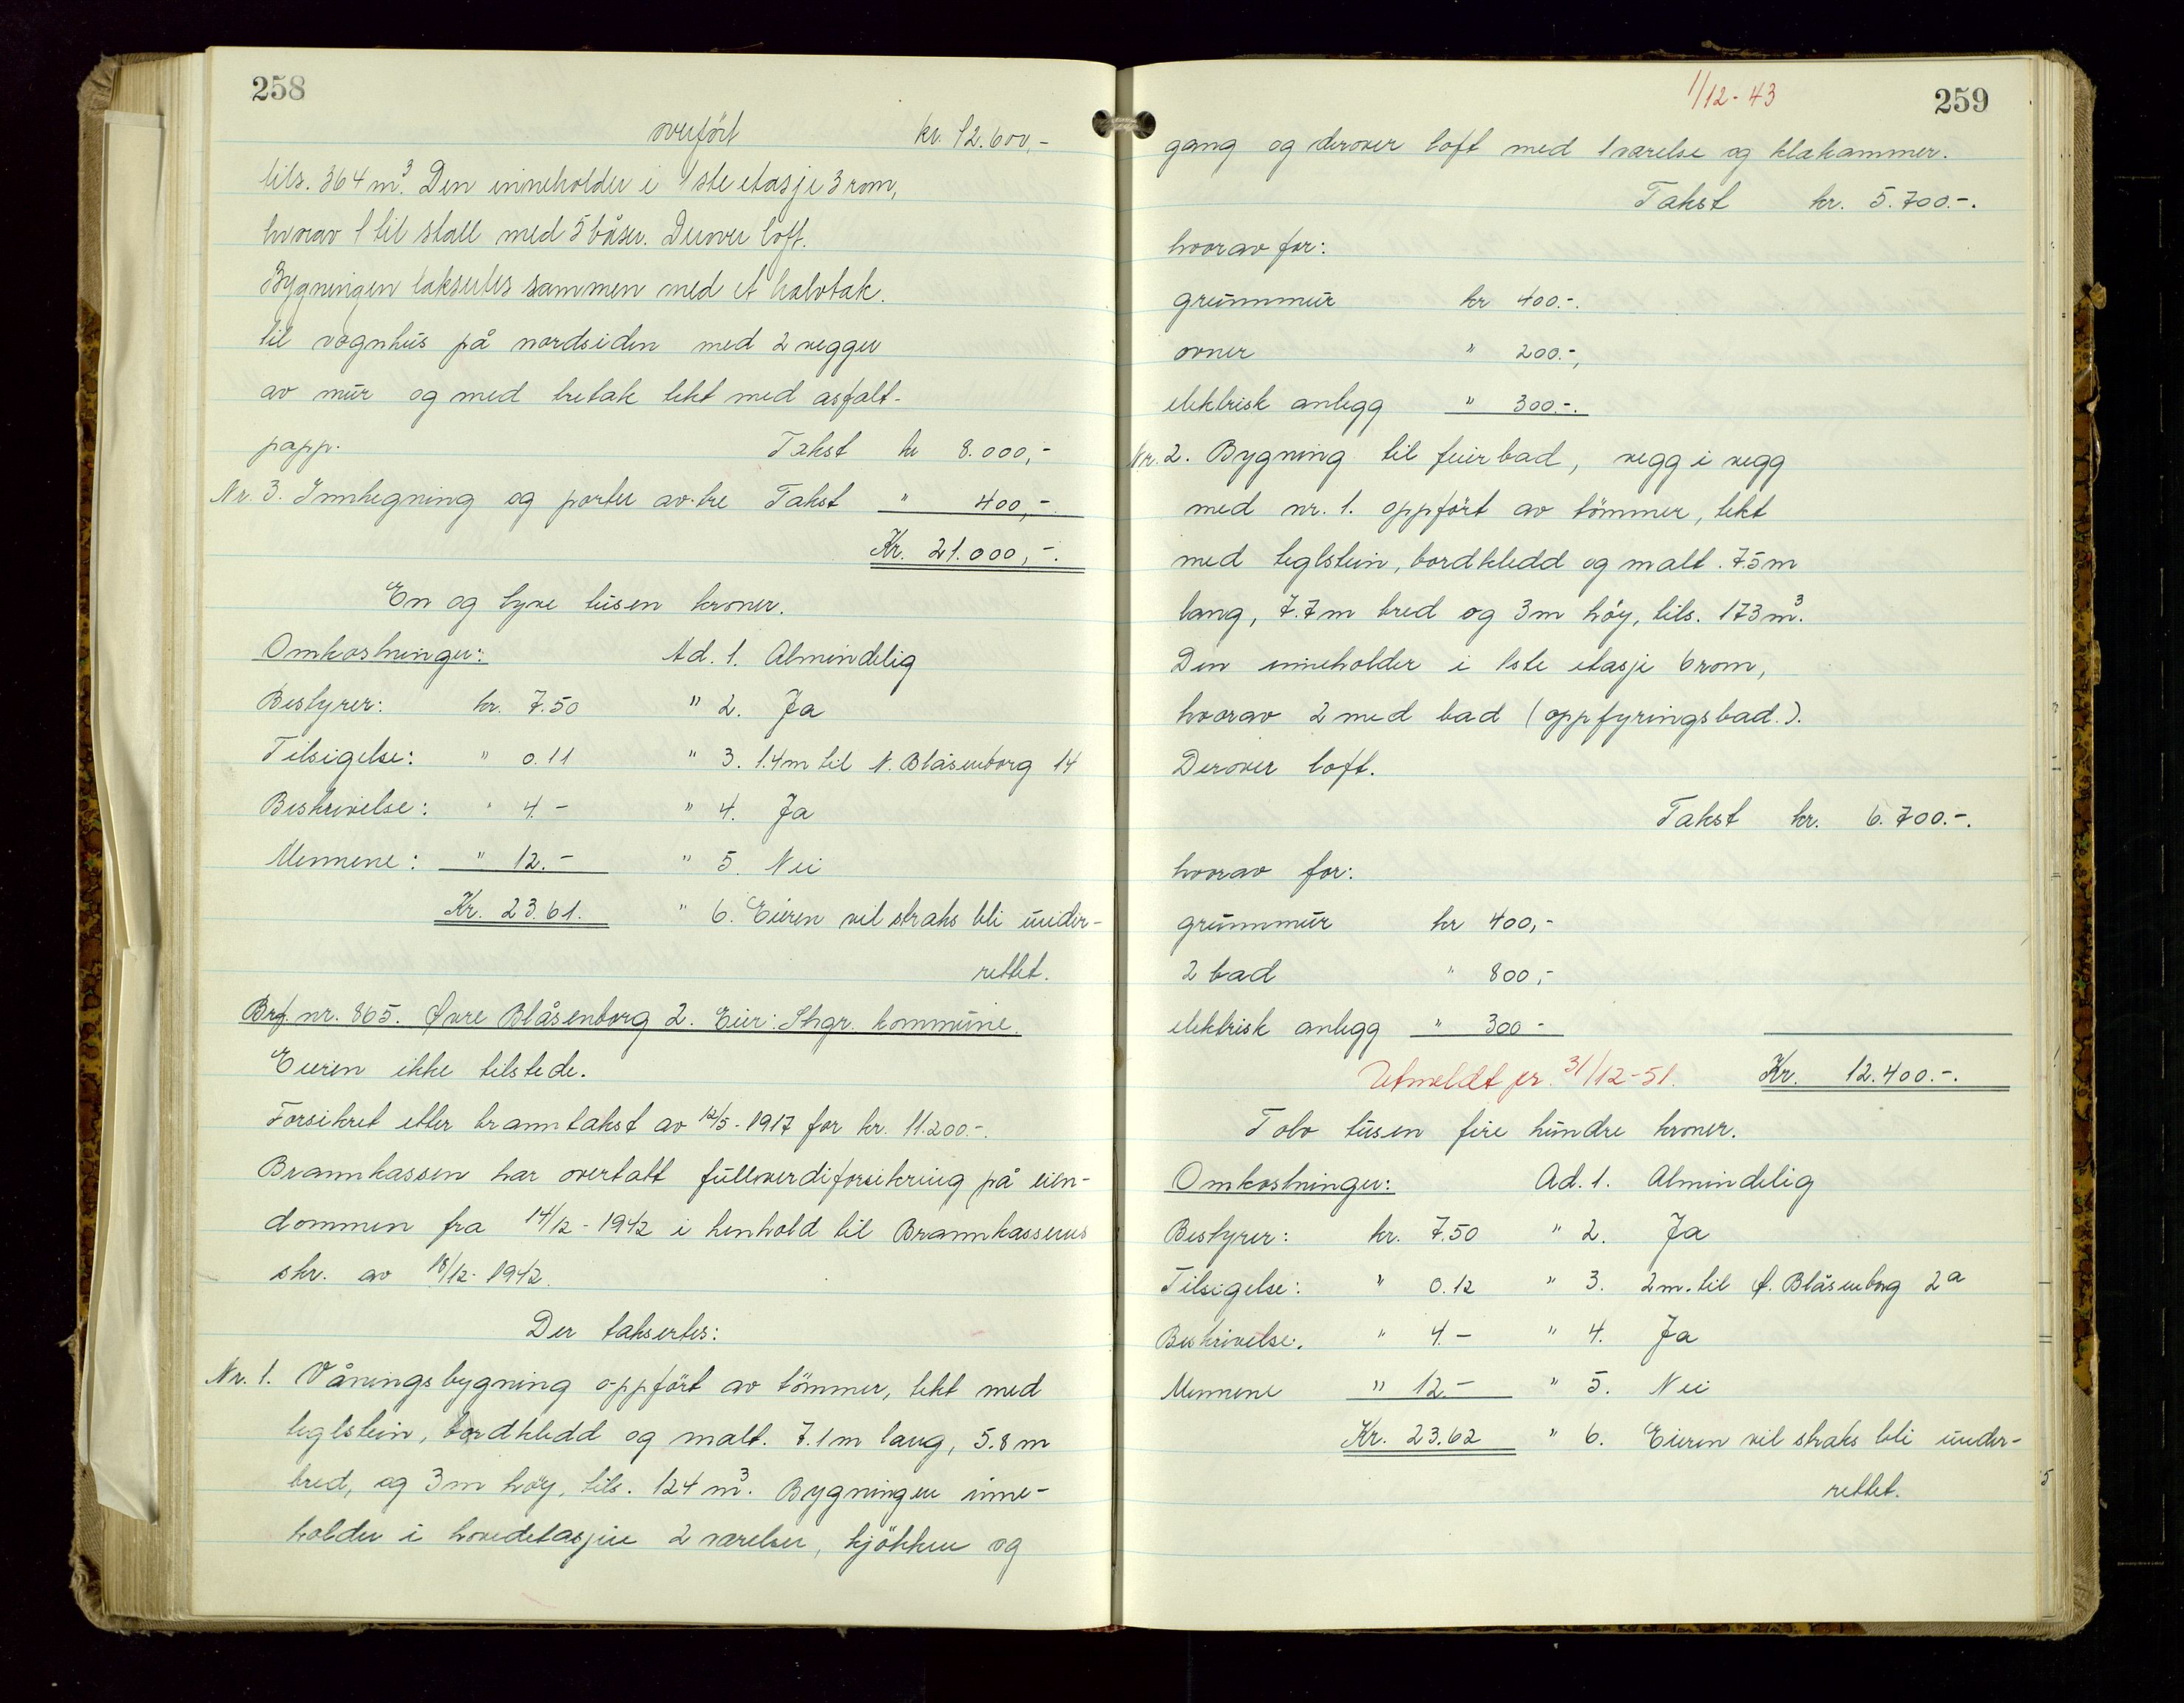 258
overført kr. 12.600,-
tils. 364 m³. Den inneholder i 1ste etasje 3 rom,
hvorav 1 til stall med 5 båser. Derover loft.
Bygningen takseres sammen med et halvtak
til vognhus på nordsiden med 2 vegger
av mur og med tretak tekt med asfalt-
papp. Takst kr 8.000,-
Nr. 3. Innhegning og porter av tre Takst " 400,-
Kr. 21.000,-.
En og tyve tusen kroner.
Omkostninger: Ad. 1. Almindelig
Bestyrer: kr. 7.50 " 2. Ja
Tilsigelse: " 0.11 " 3. 1.4 m til N. Blåsenborg 14
Beskrivelse: " 4.- " 4. Ja
Mennene: " 12.- " 5. Nei
Kr. 23.61. " 6. Eieren vil straks bli under-
rettet.
Brf. nr. 865. Øvre Blåsenborg 2. Eier: Stgr. kommune.
Eieren ikke tilstede.
Forsikret etter branntakst av 12/5-1917 for kr. 11.200.-.
Brannkassen har overtatt fullverdiforsikring på eien-
dommen fra 14/12-1942 i henhold til Brannkassens
skr. av 18/12-1942.
Der taksertes:
Nr. 1. Våningsbygning oppført av tömmer, tekt med
teglstein, bordkledd og malt. 7.1 m lang, 5.8 m
bred, og 3 m höy, tils. 124 m³. Bygningen inne-
holder i hovedetasjen 2 værelser, kjökken og
1/12-43
259
gang og derover loft med 1 værelse og klekammer.
Takst kr. 5.700.-.
hvorav for:
grunnmur kr 400.-.
ovner " 200.-,
elektrisk anlegg " 300.-.
Nr. 2. Bygning til feierbad, vegg i vegg
med nr. 1. oppført av tömmer, tekt
med teglstein, bordkledd og malt. 7.5 m
lang, 7.7 m bred og 3 m höy, tils. 173 m³.
Den inneholder i 1ste etasje 6 rom,
hvorav 2 med bad (oppfyringsbad.).
Derover loft.
Takst kr. 6.700.-.
hvorav for:
grunnmur kr 400,-
2 bad " 800,-
elektrisk anlegg " 300 -
Utmeldt pr. 31/12-51. Kr. 12.400.-.
Tolv tusen fire hundre kroner.
Omkostninger: Ad. 1. Almindelig
Bestyrer: kr. 7.50 " 2. Ja
Tilsigelse: " 0.12 " 3. 2 m. til Ø. Blåsenborg 2a
Beskrivelse. " 4.- " 4. Ja
Mennene " 12.- " 5. Nei
Kr. 23.62 " 6. Eieren vil straks bli under-
rettet.